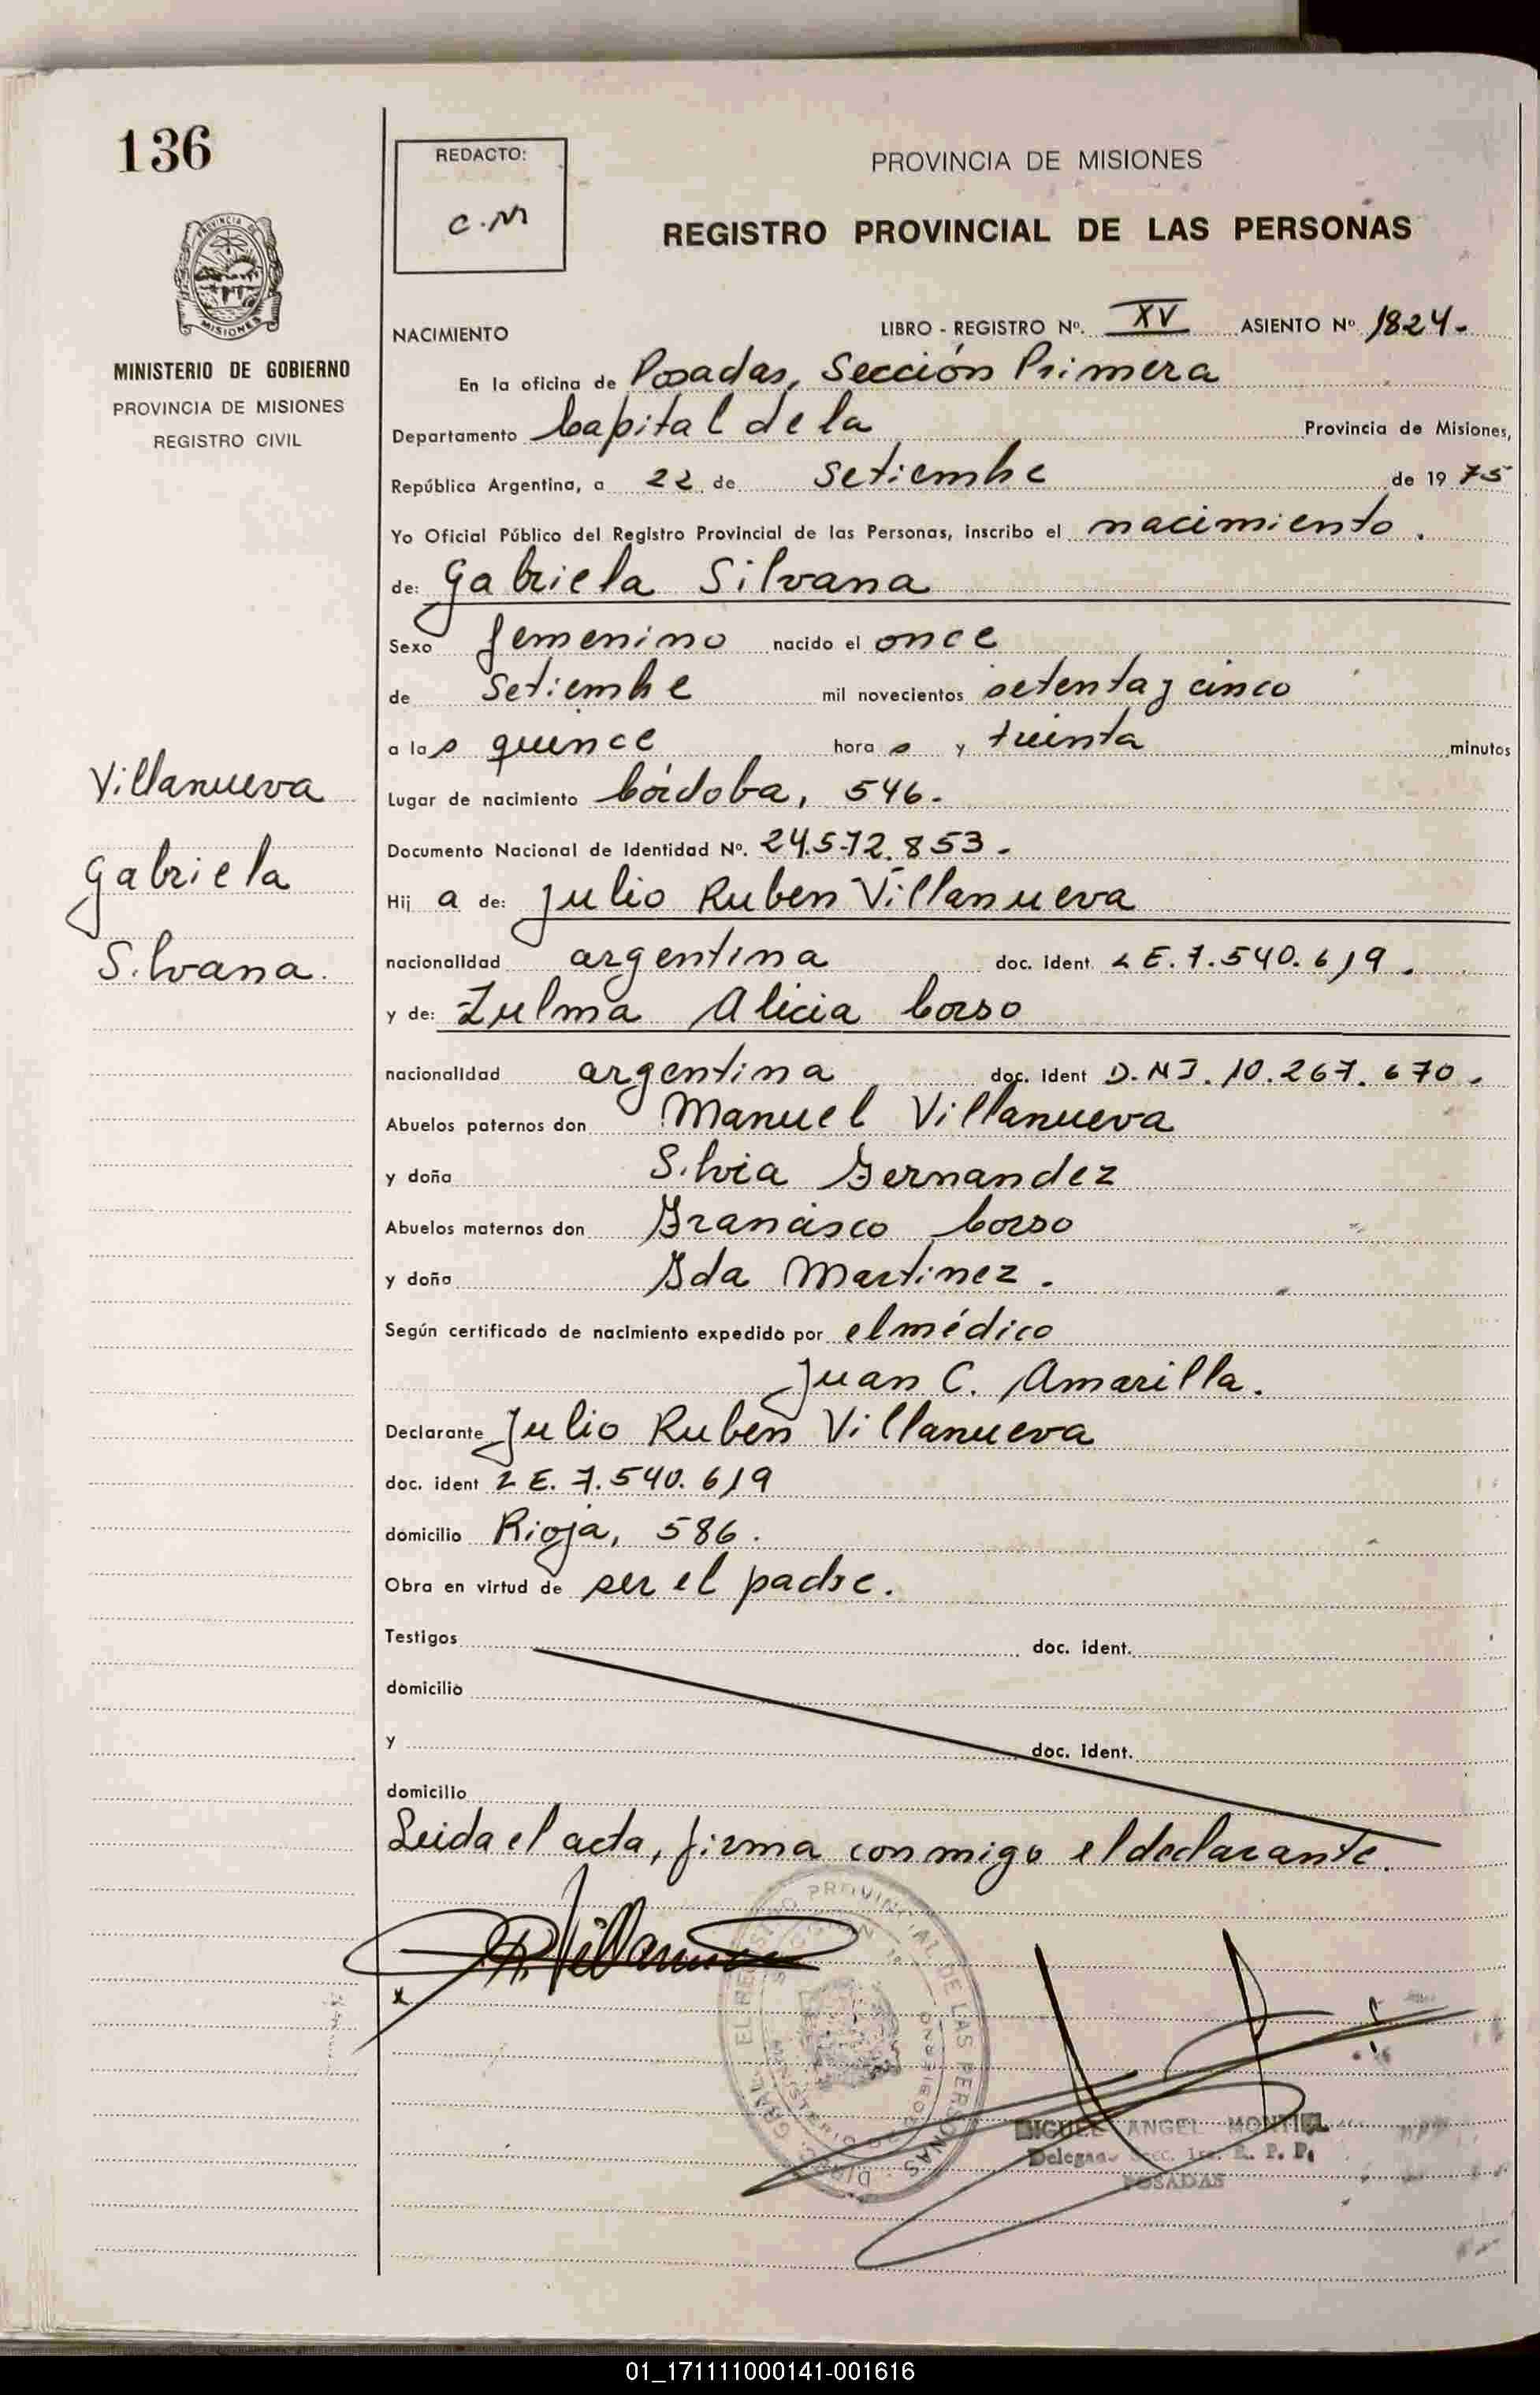 136
REDACTO:
C.M
PROVINCIA DE MISIONES
REGISTRO PROVINCIAL DE LAS PERSONAS
PROVINCIA DE
MISIONES
MINISTERIO DE GOBIERNO
PROVINCIA DE MISIONES
REGISTRO CIVIL
NACIMIENTO LIBRO - REGISTRO Nº. XV ASIENTO Nº 1824.
En la oficina de Posadas, Sección Primera
Departamento Capital de la Provincia de Misiones,
República Argentina, a 22 de Setiembre de 1975
Yo Oficial Público del Registro Provincial de las Personas, inscribo el nacimiento.
de: Gabriela Silvana
Sexo femenino nacido el once
de Setiembre mil novecientos setenta y cinco
a las quince horas y treinta minutos
Lugar de nacimiento Córdoba, 546.
Documento Nacional de Identidad Nº. 24.572.853.
Hija de: Julio Ruben Villanueva
nacionalidad argentina doc. ident. L E. 7.540.619.
y de: Zulma Alicia Corso
nacionalidad argentina doc. ident D.N I. 10.267.670.
Abuelos paternos don Manuel Villanueva
y doña Silvia Fernandez
Abuelos maternos don Francisco Corso
y doña Ida Martinez.
Según certificado de nacimiento expedido por el médico
Juan C. Amarilla.
Declarante Julio Ruben Villanueva
doc. ident L E. 7.540.619
domicilio Rioja, 586.
Obra en virtud de ser el padre.
Testigos doc. ident.
domicilio
y doc. ident.
domicilio
Leida el acta, firma conmigo el declarante.
Villanueva
Gabriela
Silvana.
R. Villanueva
x
DIREC. GRAL. EL REGISTRO PROVINCIAL DE LAS PERSONAS
MINISTERIO DE GOBIERNO
MIGUEL ANGEL MONTIEL
Delegado Secc. 1ra. R. P. P.
POSADAS
01_171111000141-001616